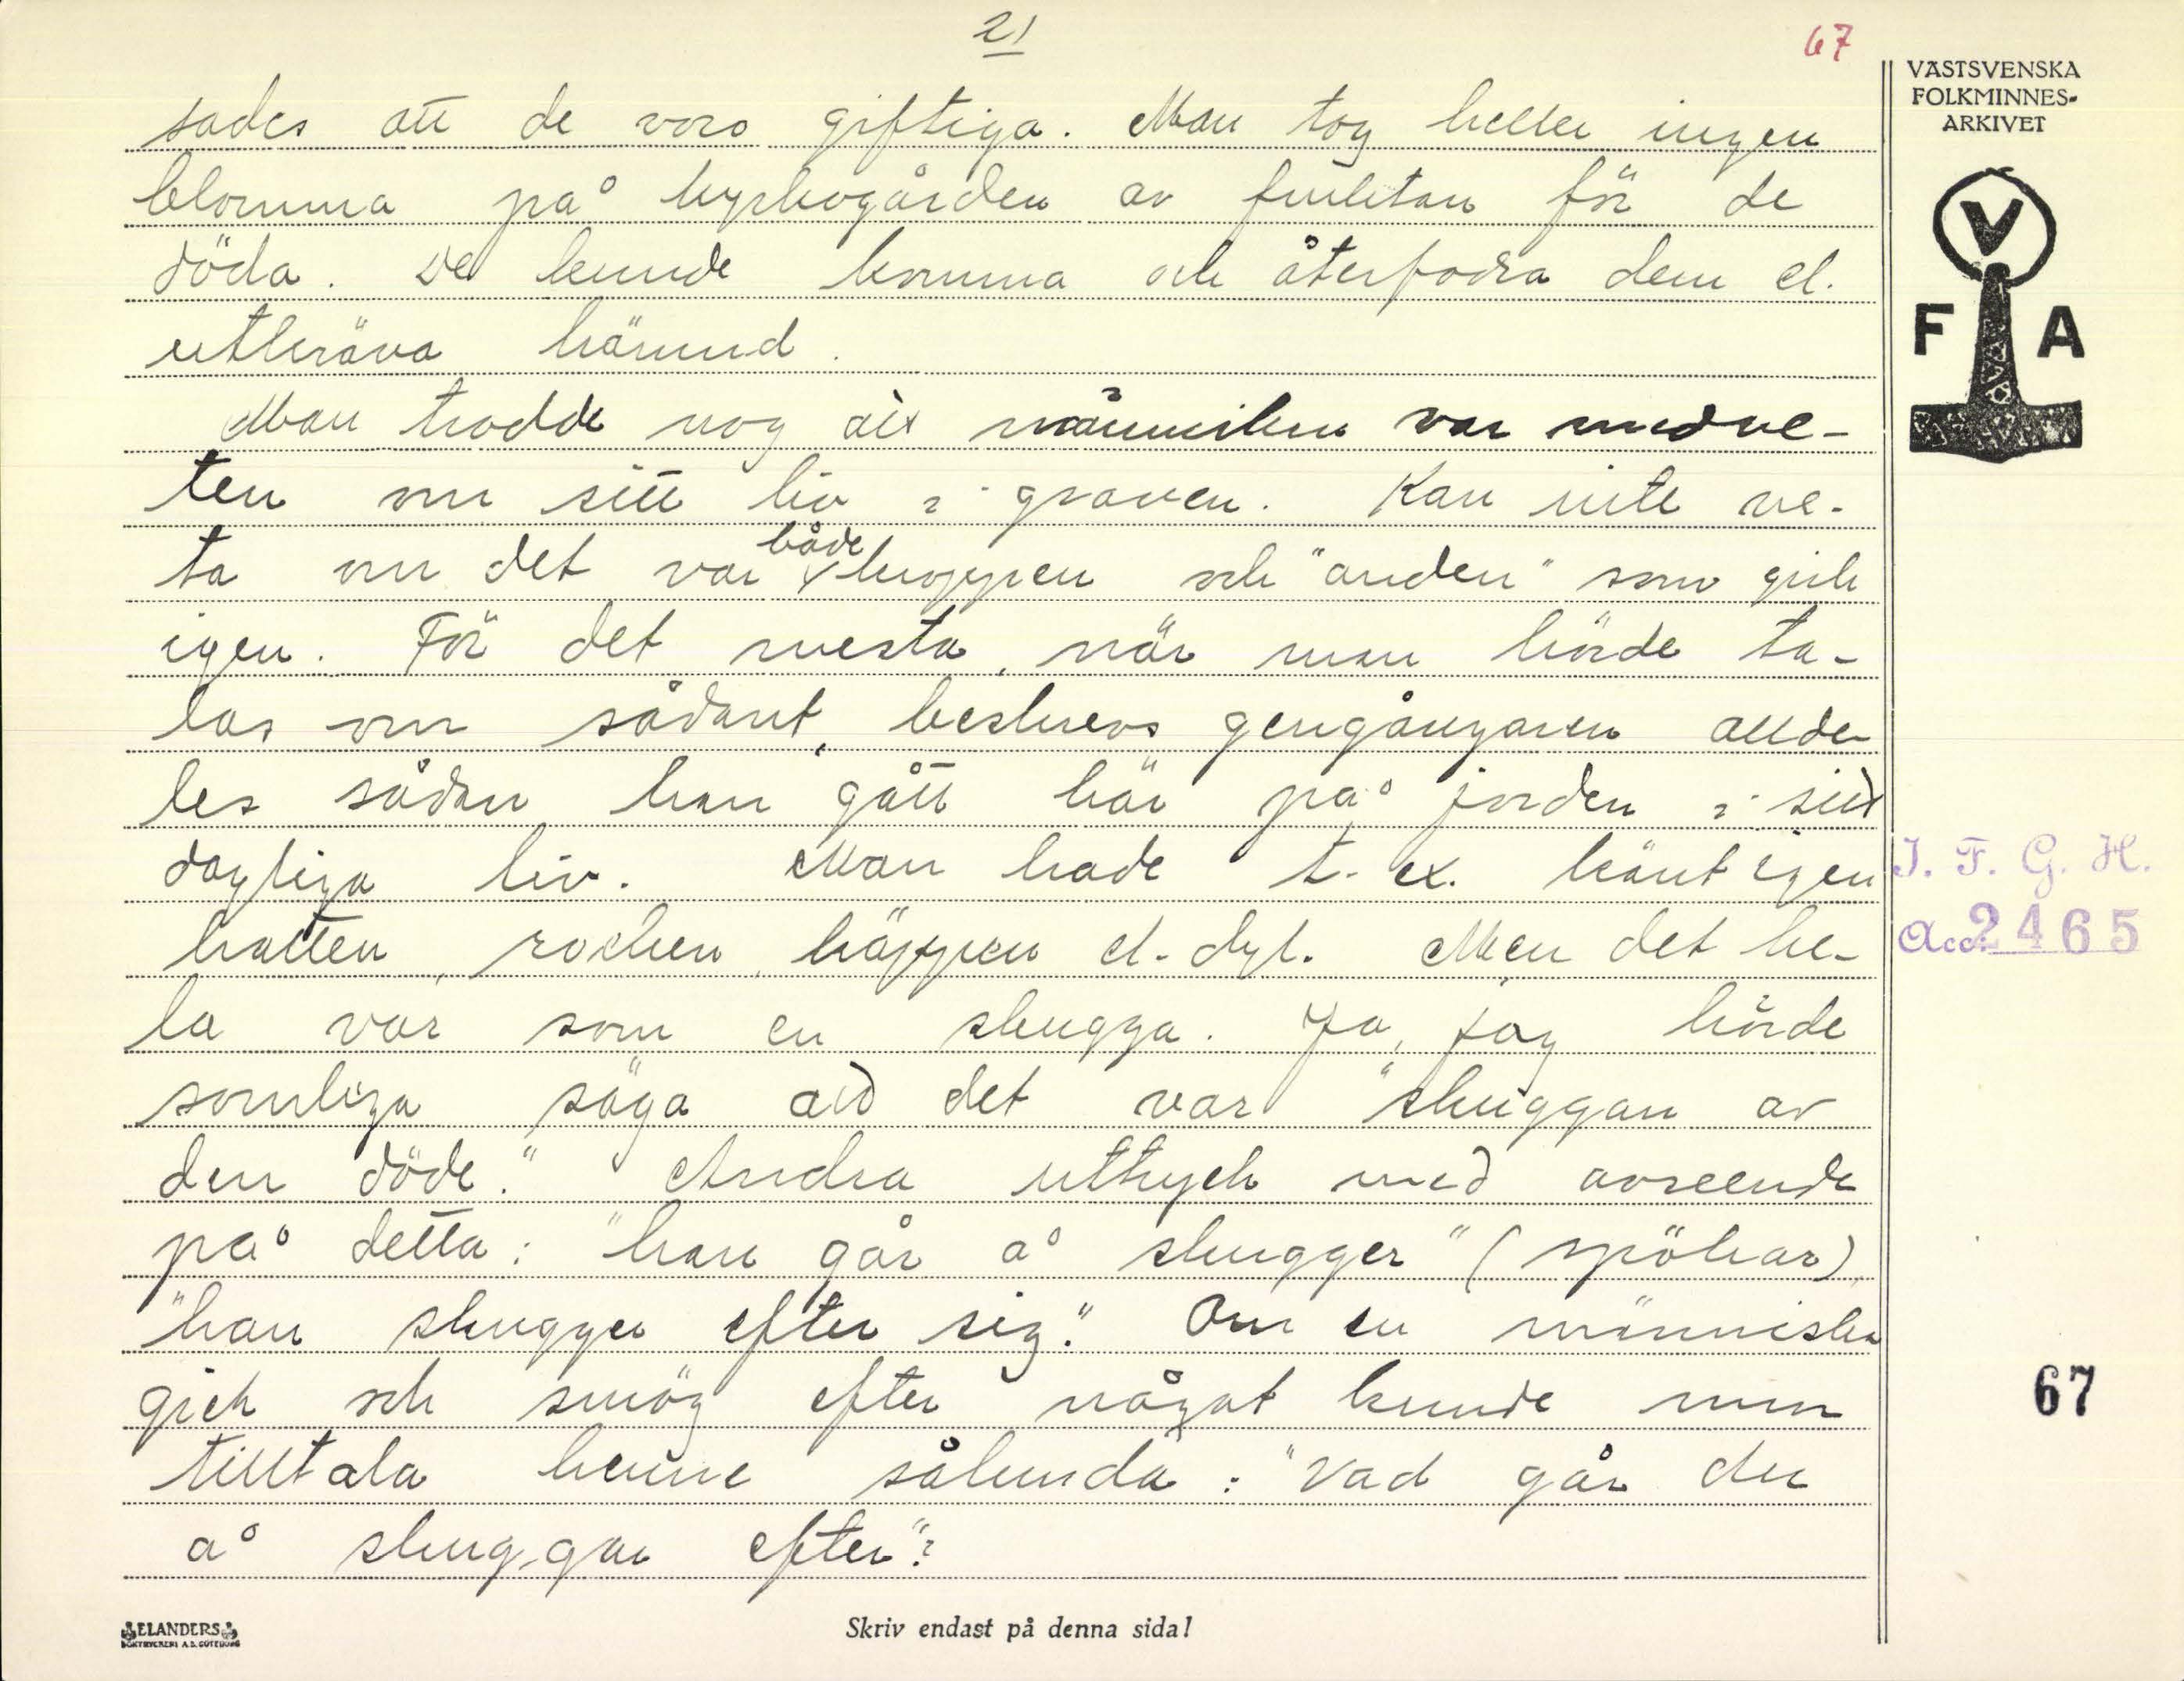 21
67
VÄSTSVENSKA
FOLKMINNES-
ARKIVET
V
F A
sades att de voro giftiga. Man tog heller ingen
blomma på kyrkogården av fruktan för de
döda. De kunde komma och återfodra dem el.
utkräva hämnd.
Man trodde nog att människan var medve-
ten om sitt liv i graven. Kan inte ve-
både
ta om det var kroppen och "anden" som gick
igen. För det mesta, när man hörde ta-
las om sådant, beskrevs gengångaren allde-
les sådan han gått här på jorden i sitt
dagliga liv. Man hade t. ex. känt igen
hatten, rocken, käppen el. dyl. Men det he-
la var som en skugga. Ja, jag hörde
somliga säga att det var "skuggan av
den döde." Andra uttryck med avseende
på detta: "han går å skugger" (spökar),
"han skugger efter sig." Om en människa
gick och smög efter något kunde man
tilltala henne sålunda: "Vad går du
å skuggar efter"?
I. F. G. H.
Acc. 2465
67
ELANDERS
BOKTRYCKERI A.B. GÖTEBORG
Skriv endast på denna sida!